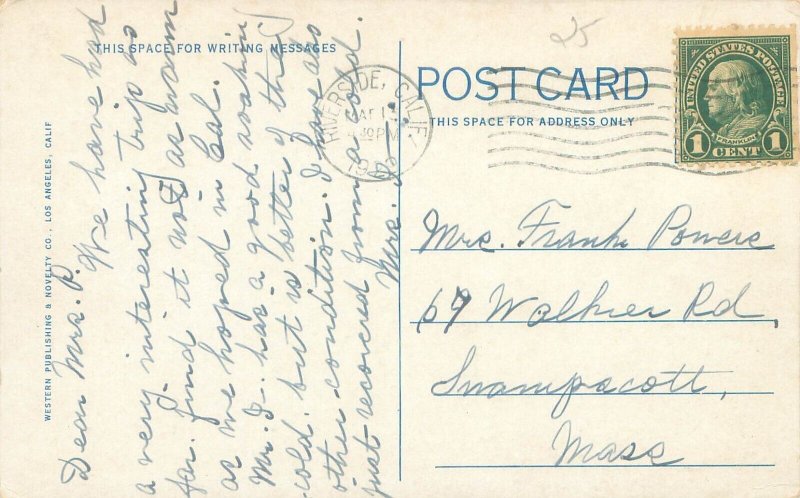 THIS SPACE FOR WRITING MESSAGES
Dear Mrs. P.
We have had
a very interesting trip so
far. find it not as warm
as we hoped in Cal.
Mr. I- has a good soakin
cold. but is better of the
other condition. I have also
just recovered from a cold.
Mrs. I-
WESTERN PUBLISHING & NOVELTY CO., LOS ANGELES, CALIF
25
RIVERSIDE, CALIF.
PM
POST CARD
THIS SPACE FOR ADDRESS ONLY
UNITED STATES POSTAGE
FRANKLIN
1 CENT 1
Mrs. Frank Powers
69 Walker Rd,
Swampscott,
Mass